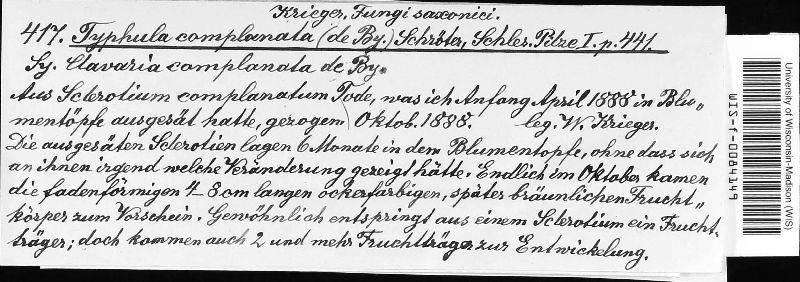 Krieger, Fungi saxonici.
417. Typhula complanata (de By.) Schröter, Schles. Pilze I. p. 441.
Sy. Clavaria complanata de By.
Aus Sclerotium complanatum Tode, was ich Anfang April 1888 in Blu„
mentöpfe ausgesät hatte, gezogen. Oktob. 1888. leg. W. Krieger.
Die ausgesäten Sclerotien lagen 6 Monate in dem Blumentopfe, ohne dass sich
an ihnen irgend welche Veränderung gezeigt hätte. Endlich im Oktober kamen
die fadenförmigen 4–8 cm langen ockerfarbigen, später bräunlichen Frucht„
körper zum Vorschein. Gewöhnlich entspringt aus einem Sclerotium ein Frucht„
träger; doch kommen auch 2 und mehr Fruchtträger zur Entwickelung.
University of Wisconsin-Madison (WIS)
WIS-f-0084149